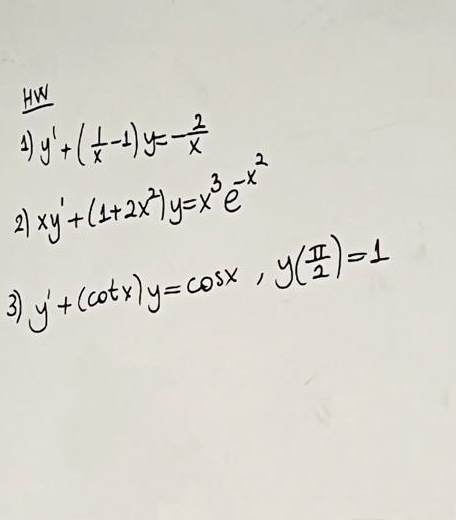 HW
1) y' + (1/x - 1) y = -2/x
2) xy' + (1+2x²) y = x³ e^-x²
3) y' + (cotx) y = cosx , y(π/2) = 1